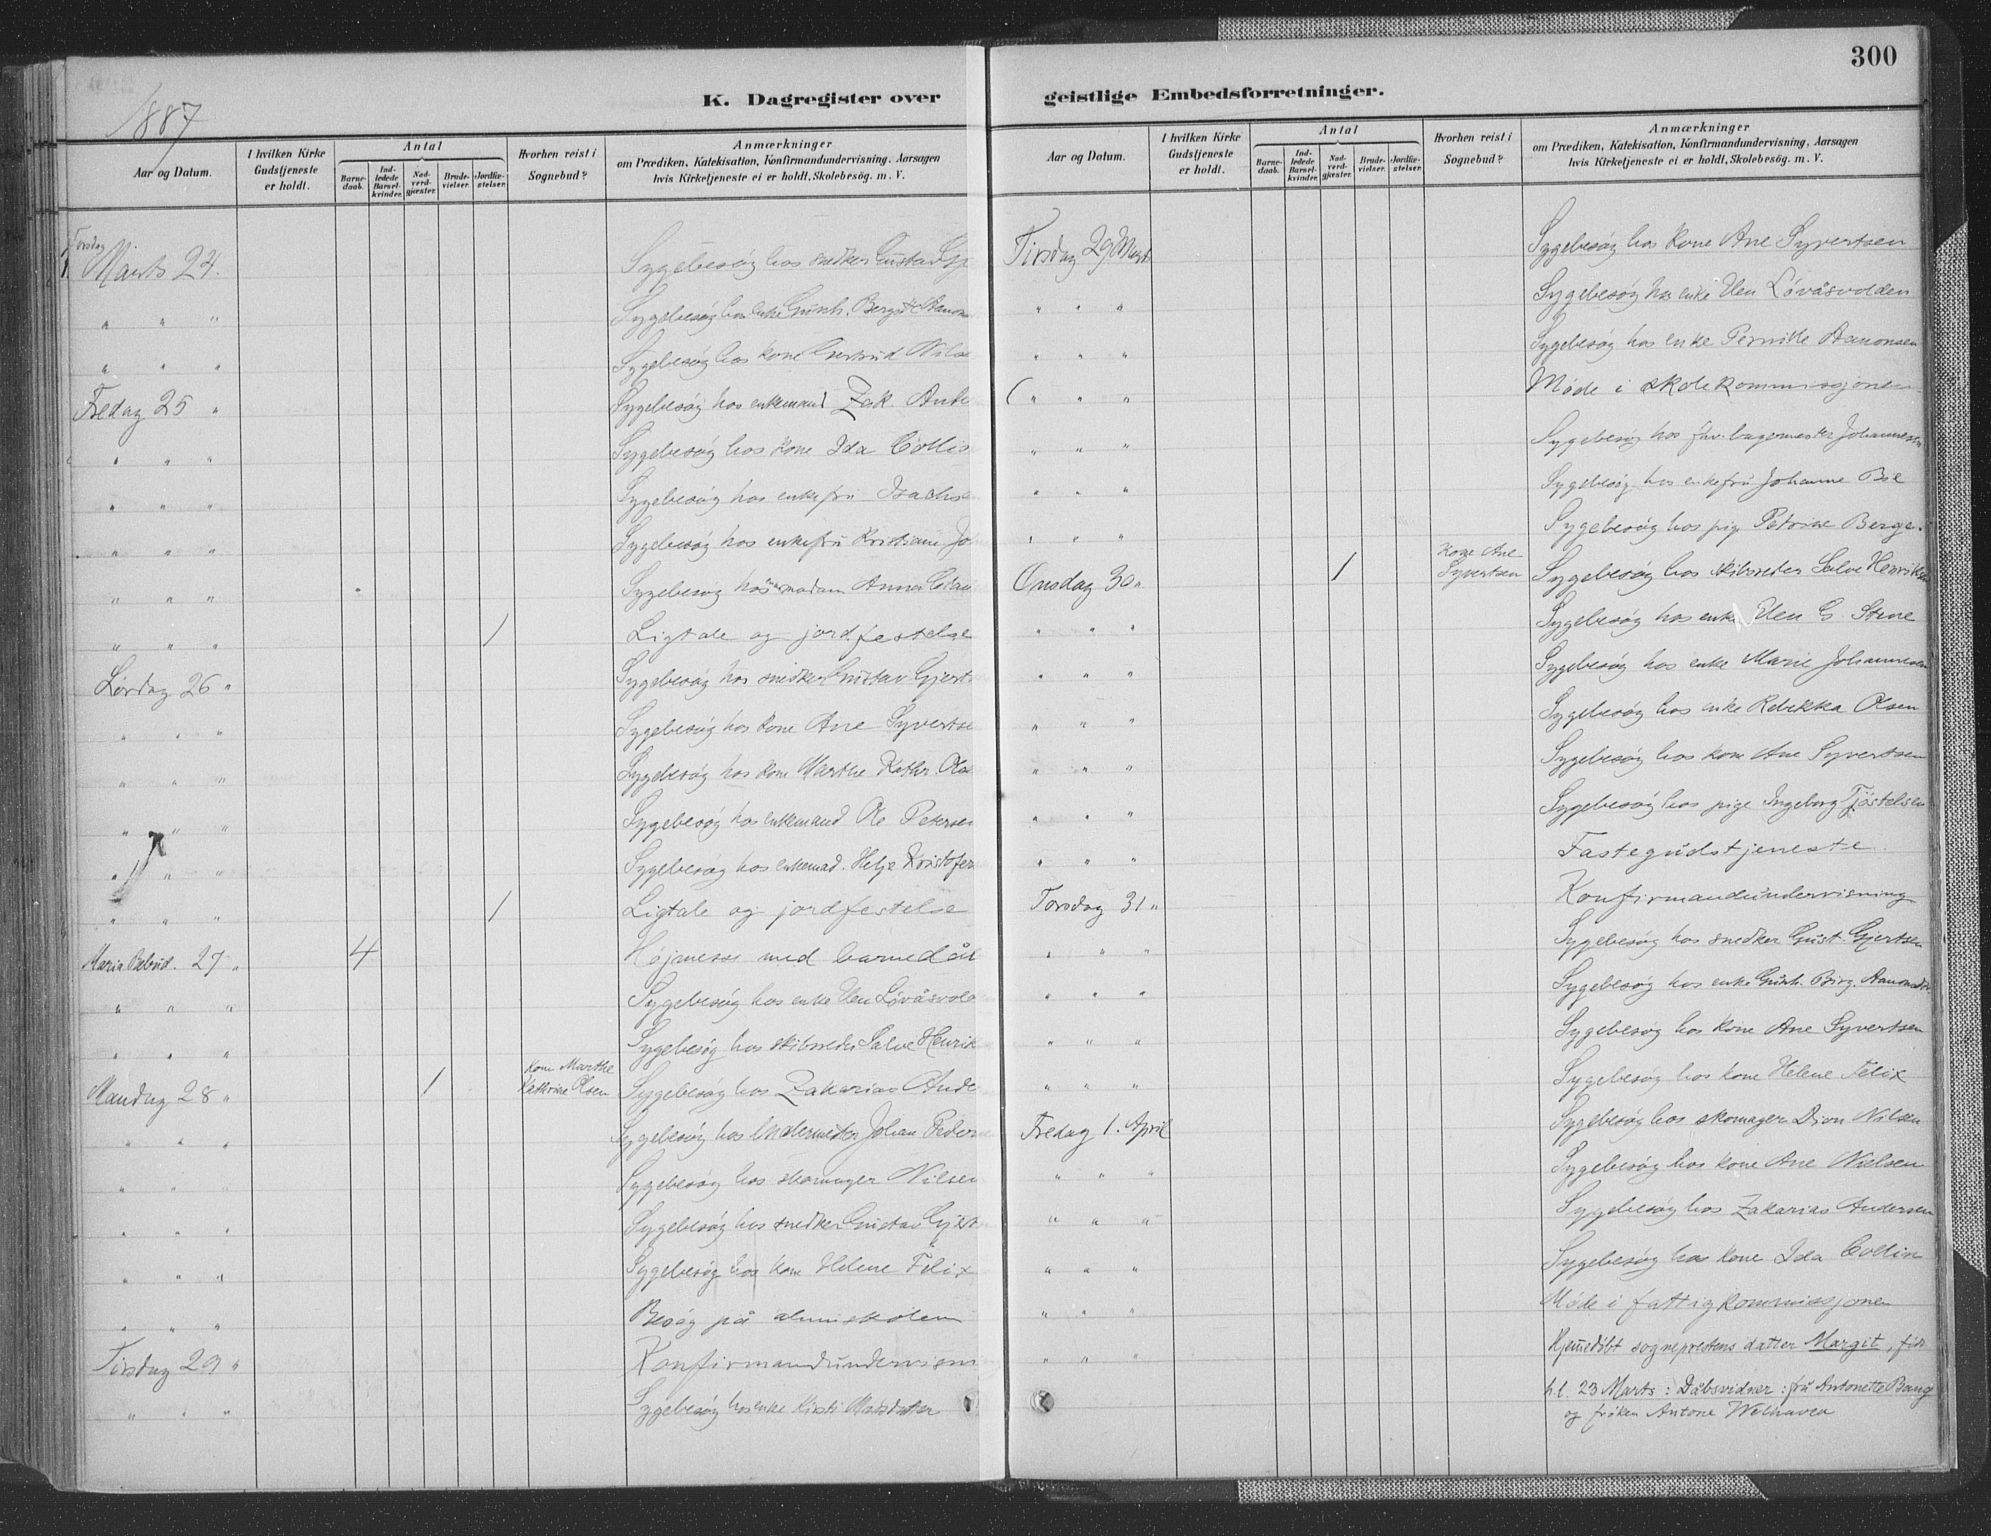 300
1887
K. Dagregister over
geistlige Embedsforretninger.
Aar og Datum.
I hvilken Kirke
Gudstjeneste
er holdt.
Antal
Barne-
daab.
Ind-
ledede
Barsel-
kvinder.
Nad-
verd-
gjæster.
Brude-
vielser.
Jordfæ-
stelser.
Hvorhen reist i
Sognebud?
Anmærkninger
om Prædiken, Katekisation, Konfirmandundervisning, Aarsagen
hvis Kirketjeneste ei er holdt, Skolebesøg. m. V.
Torsdag
Marts 24. Sygebesøg hos snedker Gustav
" " " Sygebesøg hos enke Gunh.
" " " Sygebesøg hos kone Gjertrud Nilse
Fredag 25 " Sygebesøg hos enkemand Zak. Ande
" " " Sygebesøg hos kone Ida
" " " Sygebesøg hos enkefru Isachse
" " " Sygebesøg hos enkefru Kristiane Jo
" " " Sygebesøg hos madam Anna
" " " / Ligtale og jordfestelse
Lørdag 26 " Sygebesøg hos snedker Gustav Gjerts
" " " Sygebesøg hos kone Ane Syvertse
" " " Sygebesøg hos kone Marthe Kathr. Ols
" " " Sygebesøg hos enkemand Ole Petersen
" " " Sygebesøg hos enkemad. Helje Kristofer
" " " / Ligtale og jordfestelse
Maria Bebud. 27 " 4 Højmesse med barnedåb
" " " Sygebesøg hos enke Elen Løvåsvold
" " " Sygebesøg hos skibsreder Salve Henrik
Mandag 28 " / Kone Marthe
Kathrine Olsen Sygebesøg hos Zakarias Ande
" " " Sygebesøg hos Johan Peder
" " " Sygebesøg hos skomager Nilsen
" " " Sygebesøg hos snedker Gustav Gjert
" " " Sygebesøg hos kone Helene Felix
" " " Besøg på almuskolen
Tirsdag 29 " Konfirmandundervisn
" " " Sygebesøg hos enke Kirsti Matsdatter
Aar og Datum.
I hvilken Kirke
Gudstjeneste
er holdt.
Antal
Barne-
daab.
Ind-
ledede
Barsel-
kvinder.
Nad-
verd-
gjæster.
Brude-
vielser.
Jordfæ-
stelser.
Hvorhen reist i
Sognebud?
Anmærkninger
om Prædiken, Katekisation, Konfirmandundervisning, Aarsagen
hvis Kirketjeneste ei er holdt, Skolebesøg. m. V.
Tirsdag 29 Marts Sygebesøg hos kone Ane Syvertsen
" " " Sygebesøg hos enke Elen Løvåsvolden
" " " Sygebesøg hos enke Pernille Aanonsen
( " " " Møde i skolekommissjonen
" " " Sygebesøg hos fhv. bagermester Johannesen
" " " Sygebesøg hos enkefru Johanne Boe
" " " Sygebesøg hos pige Petrine Berge.
Onsdag 30 " / Kone Ane
Syvertsen Sygebesøg hos skibsreder Salve Henriksen
" " " Sygebesøg hos enke Elen G. Stene
" " " Sygebesøg hos enke Marie Johannesen
" " " Sygebesøg hos enke Rebekka Olsen
" " " Sygebesøg hos kone Ane Syvertsen
" " " Sygebesøg hos pige Ingeborg Tjøstelsen
" " " Fastegudstjeneste.
Torsdag 31 " Konfirmandundervisning
" " " Sygebesøg hos snedker Gust. Gjertsen
" " " Sygebesøg hos enke Gunh. Birg.
" " " Sygebesøg hos kone Ane Syvertsen
" " " Sygebesøg hos kone Helene Felix
Fredag 1. April Sygebesøg hos skomager Nilsen
" " " Sygebesøg hos kone Ane Nielsen
" " " Sygebesøg hos Zakarias Andersen
" " " Sygebesøg hos kone Ida Collin
" " " Møde i fattigkommissjonen
" " " Hjemmedøbt sogneprestens datter Margit, født
23 Marts: Dåbsvidner: fru Antonette Bang
og frøken Antone Welhaven